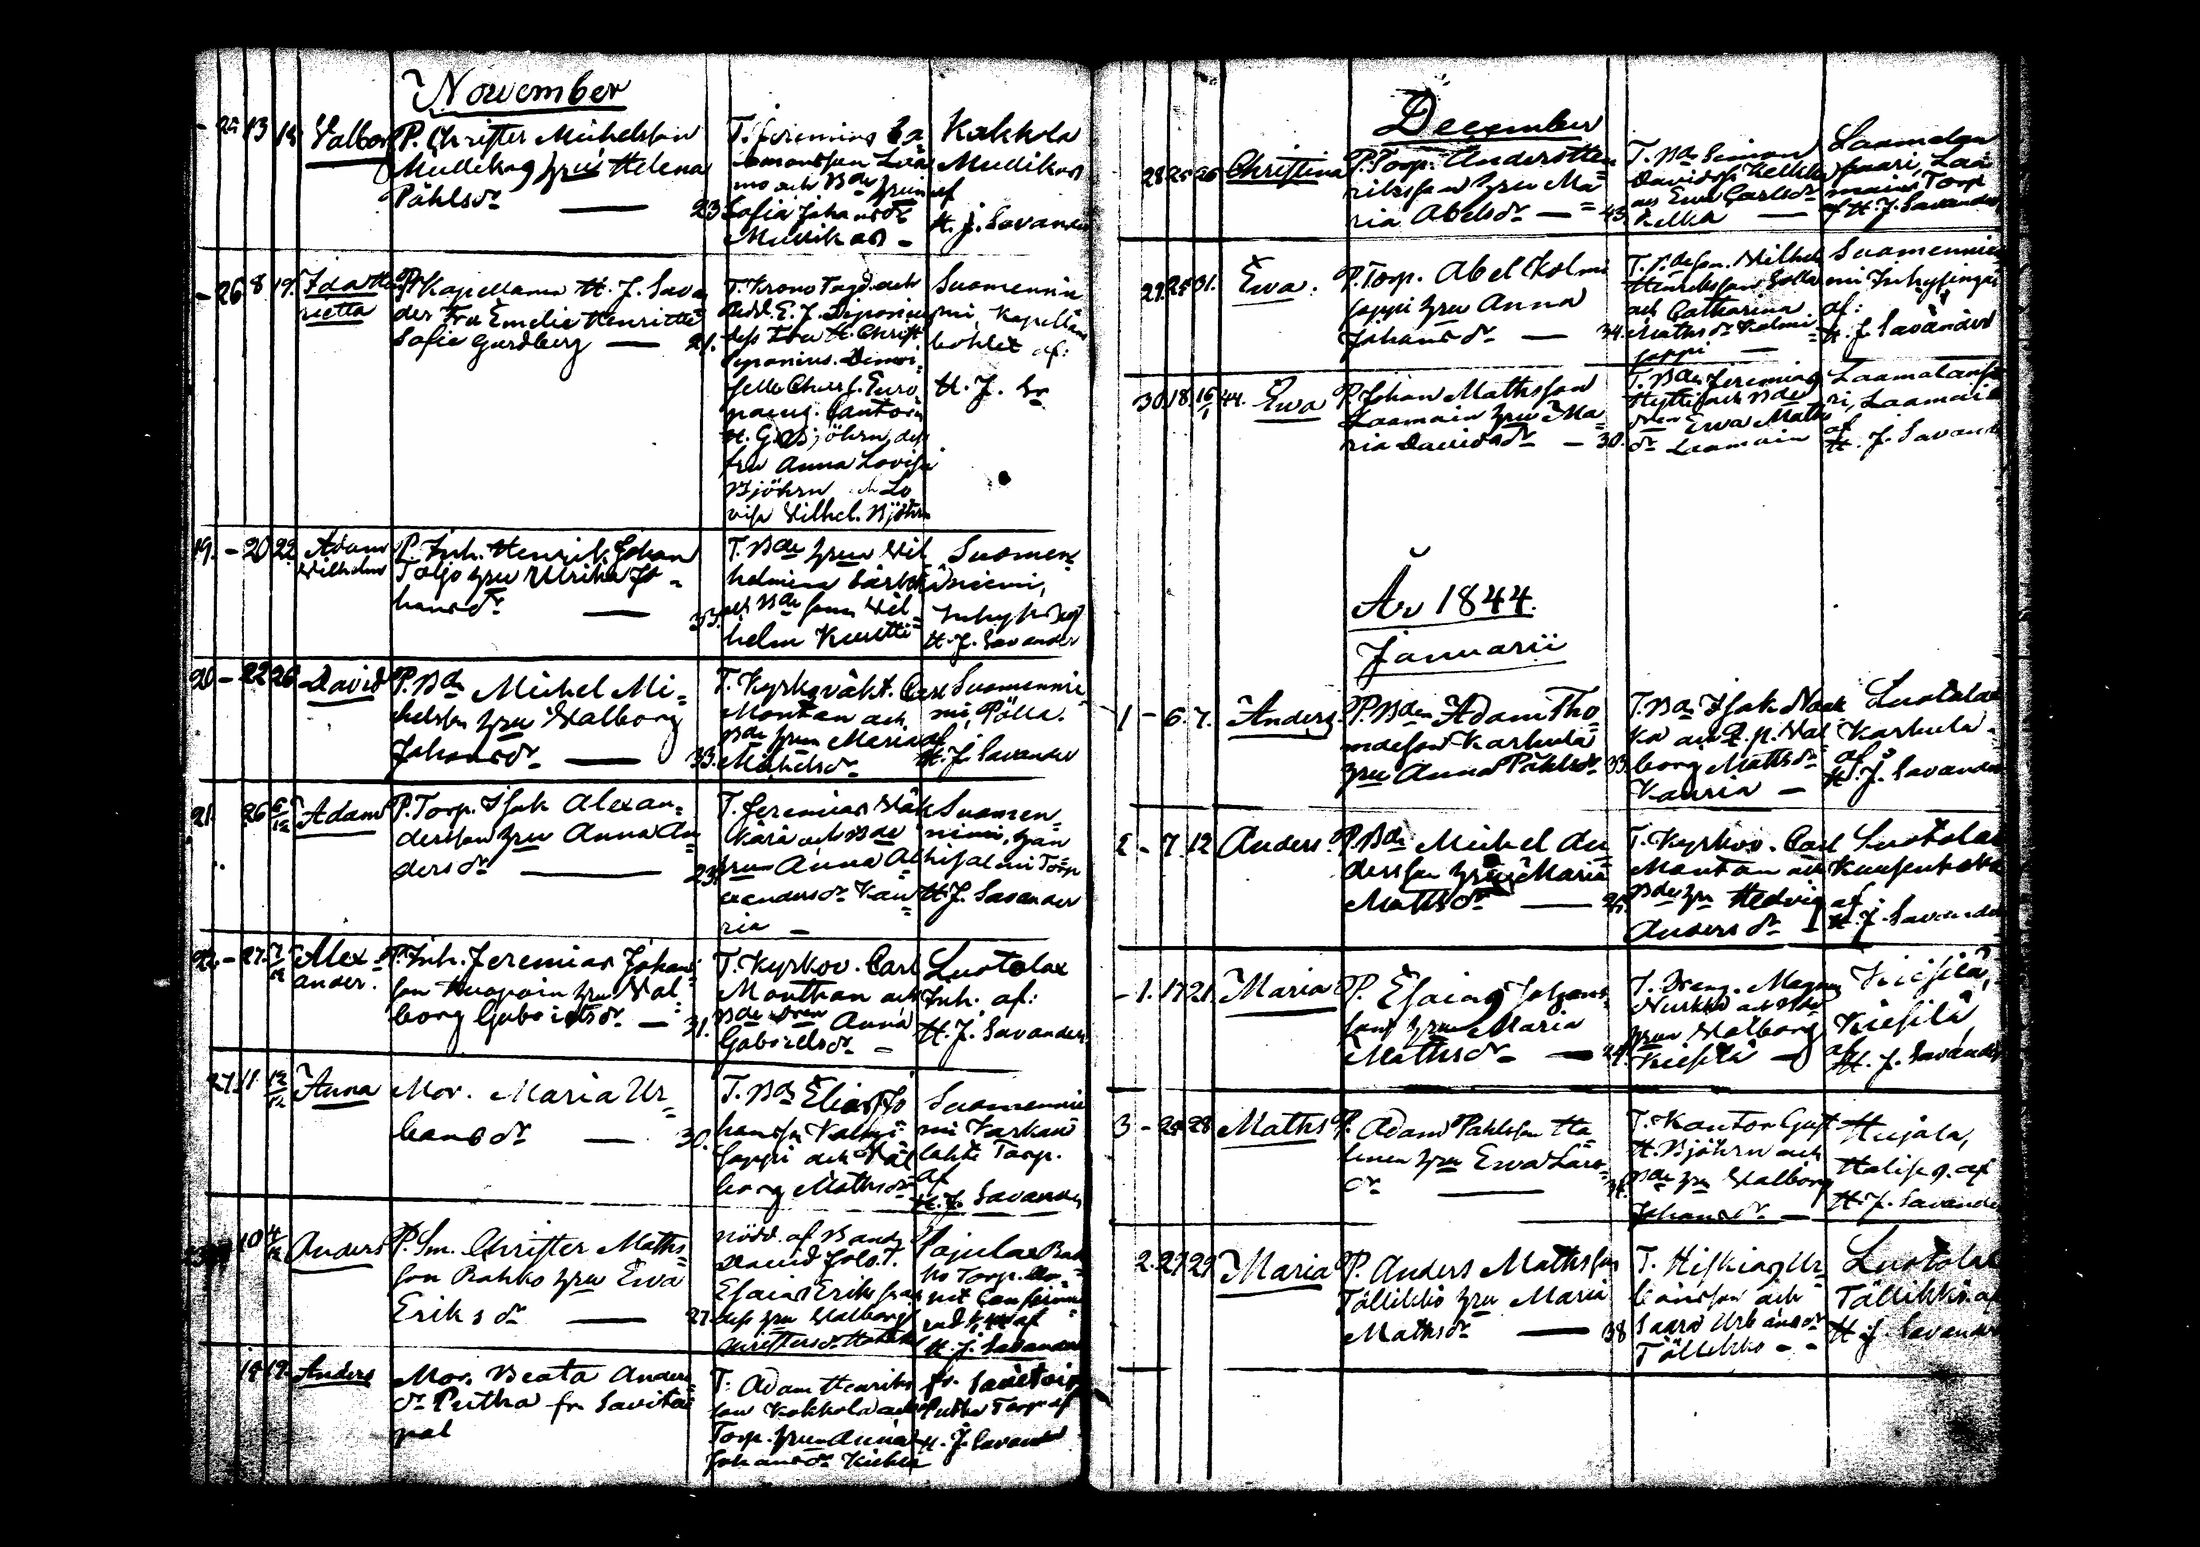 November
- 25 13 19 Valborg P. Christer Michelsson
Mullikas hru Helena
Påhlsdr — 23
T. Jeremias
och Bde hrun
Sofia Johansdr
Mullikas -
Kakkola
Mullikas
af
H. J. Savander
- 26 8 19. Ida Hen
rietta
P. Kapellanen H. J. Savan
der Fru Emelie Henriette
Sofie Gardberg — 21.
T. Krono Fogd. och
E. J.
dess Fru H. Christ.
Demoi
selle Charl. Euro
paeus. Cantorn
H. G. Björhn dess
fru Anna Lovisa
Björhn och Lo
visa Vilhel. Björhn
Suomennie
mi, Kapellans
bohlet af:
H. J. Sr
19. - 20 22 Adam
Wilhelm
P. Inh. Henrik Johan
Töljö hru Ulrika Jo
hansdr — 33.
T. Bde hru Wil
helmina
och Bde sonen Wil
helm Kurtti
Suomen
niemi,
Inhyses af
H. J. Savander
20 - 22 26 David P. Bde Michel Mi
chelsson hru Walborg
Johansdr — 33.
T. Kyrkoväkt. Carl
Montan och
Bde hrun Maria
Michelsdr
Suomennie
mi, Pölla.
af
H. J. Savander
21. 26 6/12 Adam P. Torp. Isak Alexan
dersson hru Anna An
dersdr — 23.
T. Jeremias Wäk
kärä och Bde
hrun Anna Al
exandersdr Kau
ria -
Suomen
niemi,
Torp
H. J. Savander
22. - 27. 7/12 Alex
ander.
P. Inh. Jeremias Johans
son Kuopain hru Wal
borg Gabrielsdr — 31.
T. Kyrkov. Carl
Monthan och
Bde dren Anna
Gabrielsdr -
Luotolax
Inh. af:
H. J. Savander
27. 11. 12/12 Anna Mor. Maria Ur
bansdr — 30.
T. Bde Elias Jo
hansson Kalmi
joppi och Wal
borg Mathsdr
Suomennie
mi Karkau
lahti Torp.
af
H. J. Savander
10 4/12 Anders P. Sm. Christer Maths
son Rahko hru Ewa
Eriksdr — 27.
nödd. af Bond
David T.
Esaias Eriksson
dess hru Walborg
Christersdr
Pajula
Torp.
af
H. J. Savander
14 19. Anders Mor. Beata Anders
dr Putha fr Savitai
pal
T. Adam Henriks
son Kakkola och
Torp. hrun Anna
Johansdr
fr. Savitai
Putha Torp af
H. J. Savander
December
28 25 26 Christina P. Torp. Anders Hen
riksson hru Ma
ria Abelsdr — 43.
T. Bde Simon
Davidss. Kelkka
och Ewa Carlsdr
Kelka —
Laamalan
saari, Laa
main Torp
af H. J. Savander
29. 25 31. Ewa. P. Torp. Abel Kolmi
joppi hru Anna
Johansdr — 34.
T. Wilhel
Henriksson
och Catharina
Mathsdr Kolmi
joppi —
Suomennie
mi Inhysinge
af:
H. J. Savander
30. 18. 16/1 44. Ewa P. Johan Mathsson
Laamain hru Ma
ria Davidsdr — 30.
T. Bde Jeremias
Hytti och Bde
dren Ewa Maths
dr Laamain
Laamalansa
ri, Laamai
af
H. J. Savander
År 1844.
Januarii
1 - 6. 7. Anders P. Bden Adam Tho
masson Karhula
hru Anna Påhlsdr 33.
T. Bde Isak Nok
ka och Wal
borg Mathsdr
Kauria —
Luotolax
Karhula.
af:
H. J. Savander
2 - 7. 12 Anders. P. Bde Michel An
dersson hru Maria
Mathsdr —
T. Kyrkov. Carl
Montan och
Bde hru Hedvig
Andersdr
Luotolax
af
H. J. Savander
- 1. 17 21. Maria P. Esaias Johans
son hru Maria
Mathsdr — 24.
T. Dreng. Magnus
Nurkko och
hrun Walborg
Kiesilä —
Kiesilä,
Kiesilä
af
H. J. Savander
3 - 25 28 Maths P. Adam Påhlsson Ha
linen hru Ewa Lars
dr —
T. Kantor Gust
H. Björhn och
Bde hru Walborg
Johansdr —
Hujala,
af
H. J. Savander
2. 27 29 Maria P. Anders Mathsson
Tällikkö hru Maria
Mathsdr — 38
T. Hiskias Ur
bansson och
Saara Urbansdr
Tällikko - -
Luotolax
Tällikkö af
H. J. Savander